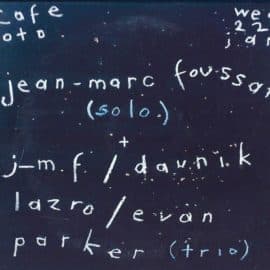 cafe
oto
wed
22
jan
jean-marc foussat
(solo.)
+
j-m.f/.daunik
lazro/evan
parker (trio)